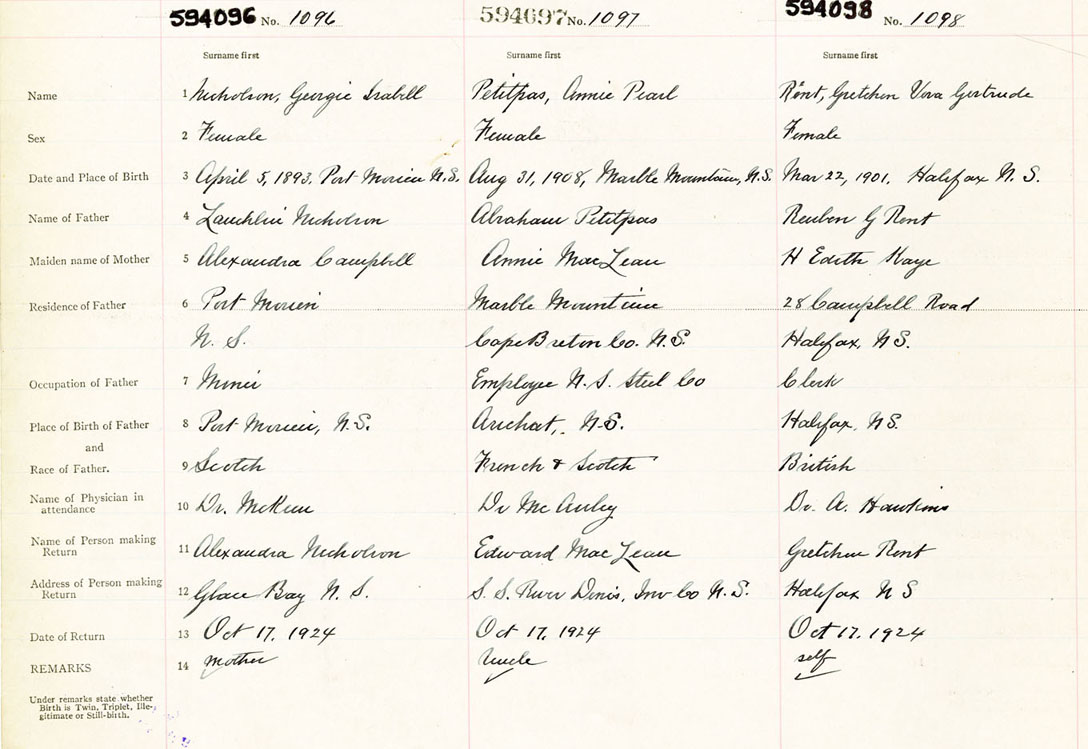 594096 No. 1096
594097 No. 1097
594098 No. 1098
Surname first
Surname first
Surname first
Name
1 Nicholson, Georgie Isabell
Petitpas, Annie Pearl
Rent, Gretchen Vova Gertrude
Sex
2 Female
Female
Female
Date and Place of Birth
3 April 5, 1893, Port Morien N.S.
Aug 31, 1908, Marble Mountain, N.S.
Mar 22, 1901. Halifax N. S.
Name of Father
4 Lauchlin Nicholson
Abraham Petitpas
Reuben G Rent
Maiden name of Mother
5 Alexandra Campbell
Annie MacLean
H Edith Kaye
Residence of Father
6 Port Morien
Marble Mountain
28 Campbell Road
N. S.
Cape Breton Co. N.S.
Halifax, N S.
Occupation of Father
7 Miner
Employee N. S. Steel Co
Clerk
Place of Birth of Father
8 Port Morien, N.S.
Arichat, N.S.
Halifax, N S.
and
Race of Father.
9 Scotch
French & Scotch
British
Name of Physician in
attendance
10 Dr. McKeen
Dr Mc Auley
Dr. A. Hawkins
Name of Person making
Return
11 Alexandra Nicholson
Edward MacLean
Gretchen Rent
Address of Person making
Return
12 Glace Bay N. S.
S. S. River Denis, Inv Co N.S.
Halifax N S
Date of Return
13 Oct 17, 1924
Oct 17, 1924
Oct 17. 1924
REMARKS
14 mother
Uncle
self
Under remarks state whether
Birth is Twin, Triplet, Ille-
gitimate or Still-birth.